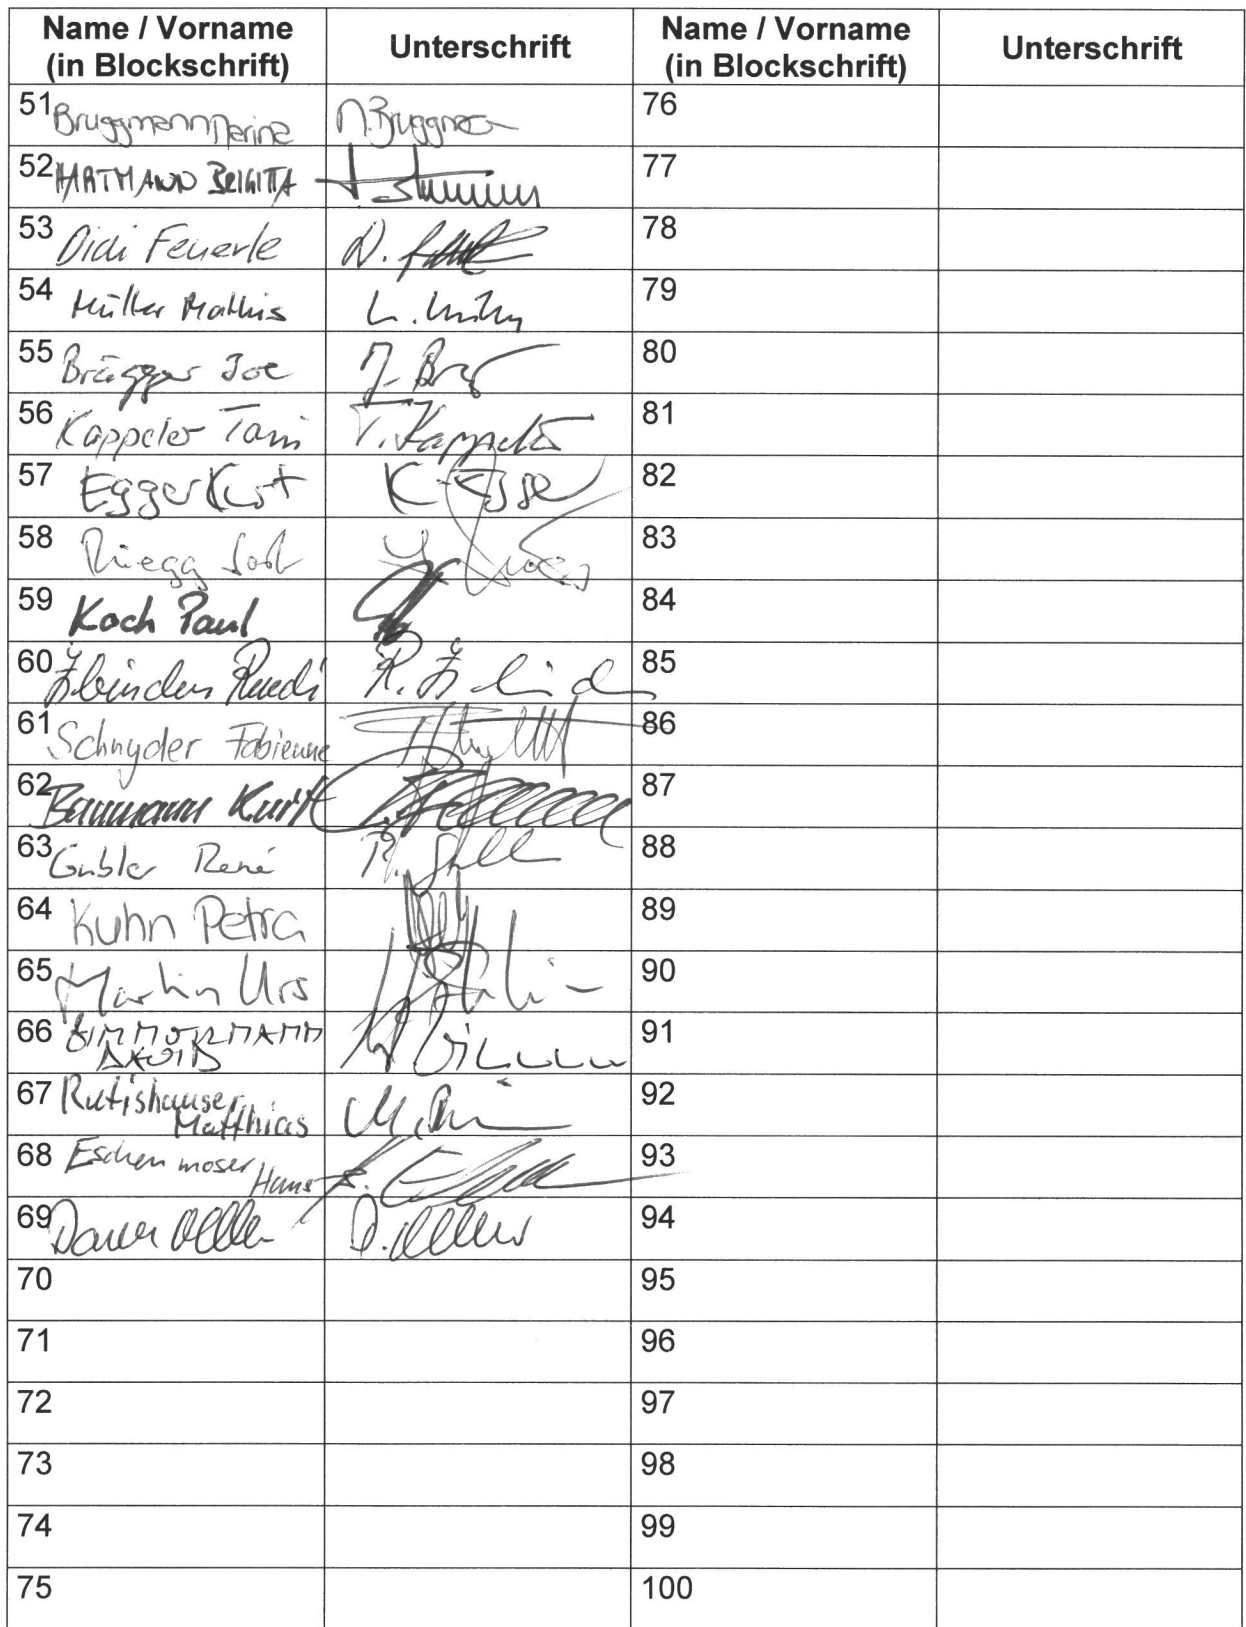 Name / Vorname Unterschrift Name / Vorname Unterschrift
(in Blockschrift) (in Blockschrift)
51 Bruggmann Marina M. Bruggmann 76
52 HARTMANN BRIGITTA 77
53 Didi Feuerle D. 78
54 Müller Mathis 79
55 Brägger Joe J. 80
56 Kappeler Toni T. Kappeler 81
57 Egger Kurt K. Egger 82
58 Rüegg 83
59 Koch Paul 84
60 Zbinden Ruedi R. Zbinden 85
61 Schnyder Fabienne 86
62 Baumann Kurt 87
63 Gubler René R. 88
64 Kuhn Petra 89
65 Martin Urs 90
66 ZIMMERMANN 91
DAVID
67 Rutishauser 92
Matthias
68 Eschenmoser 93
Hans
69 94
70 95
71 96
72 97
73 98
74 99
75 100